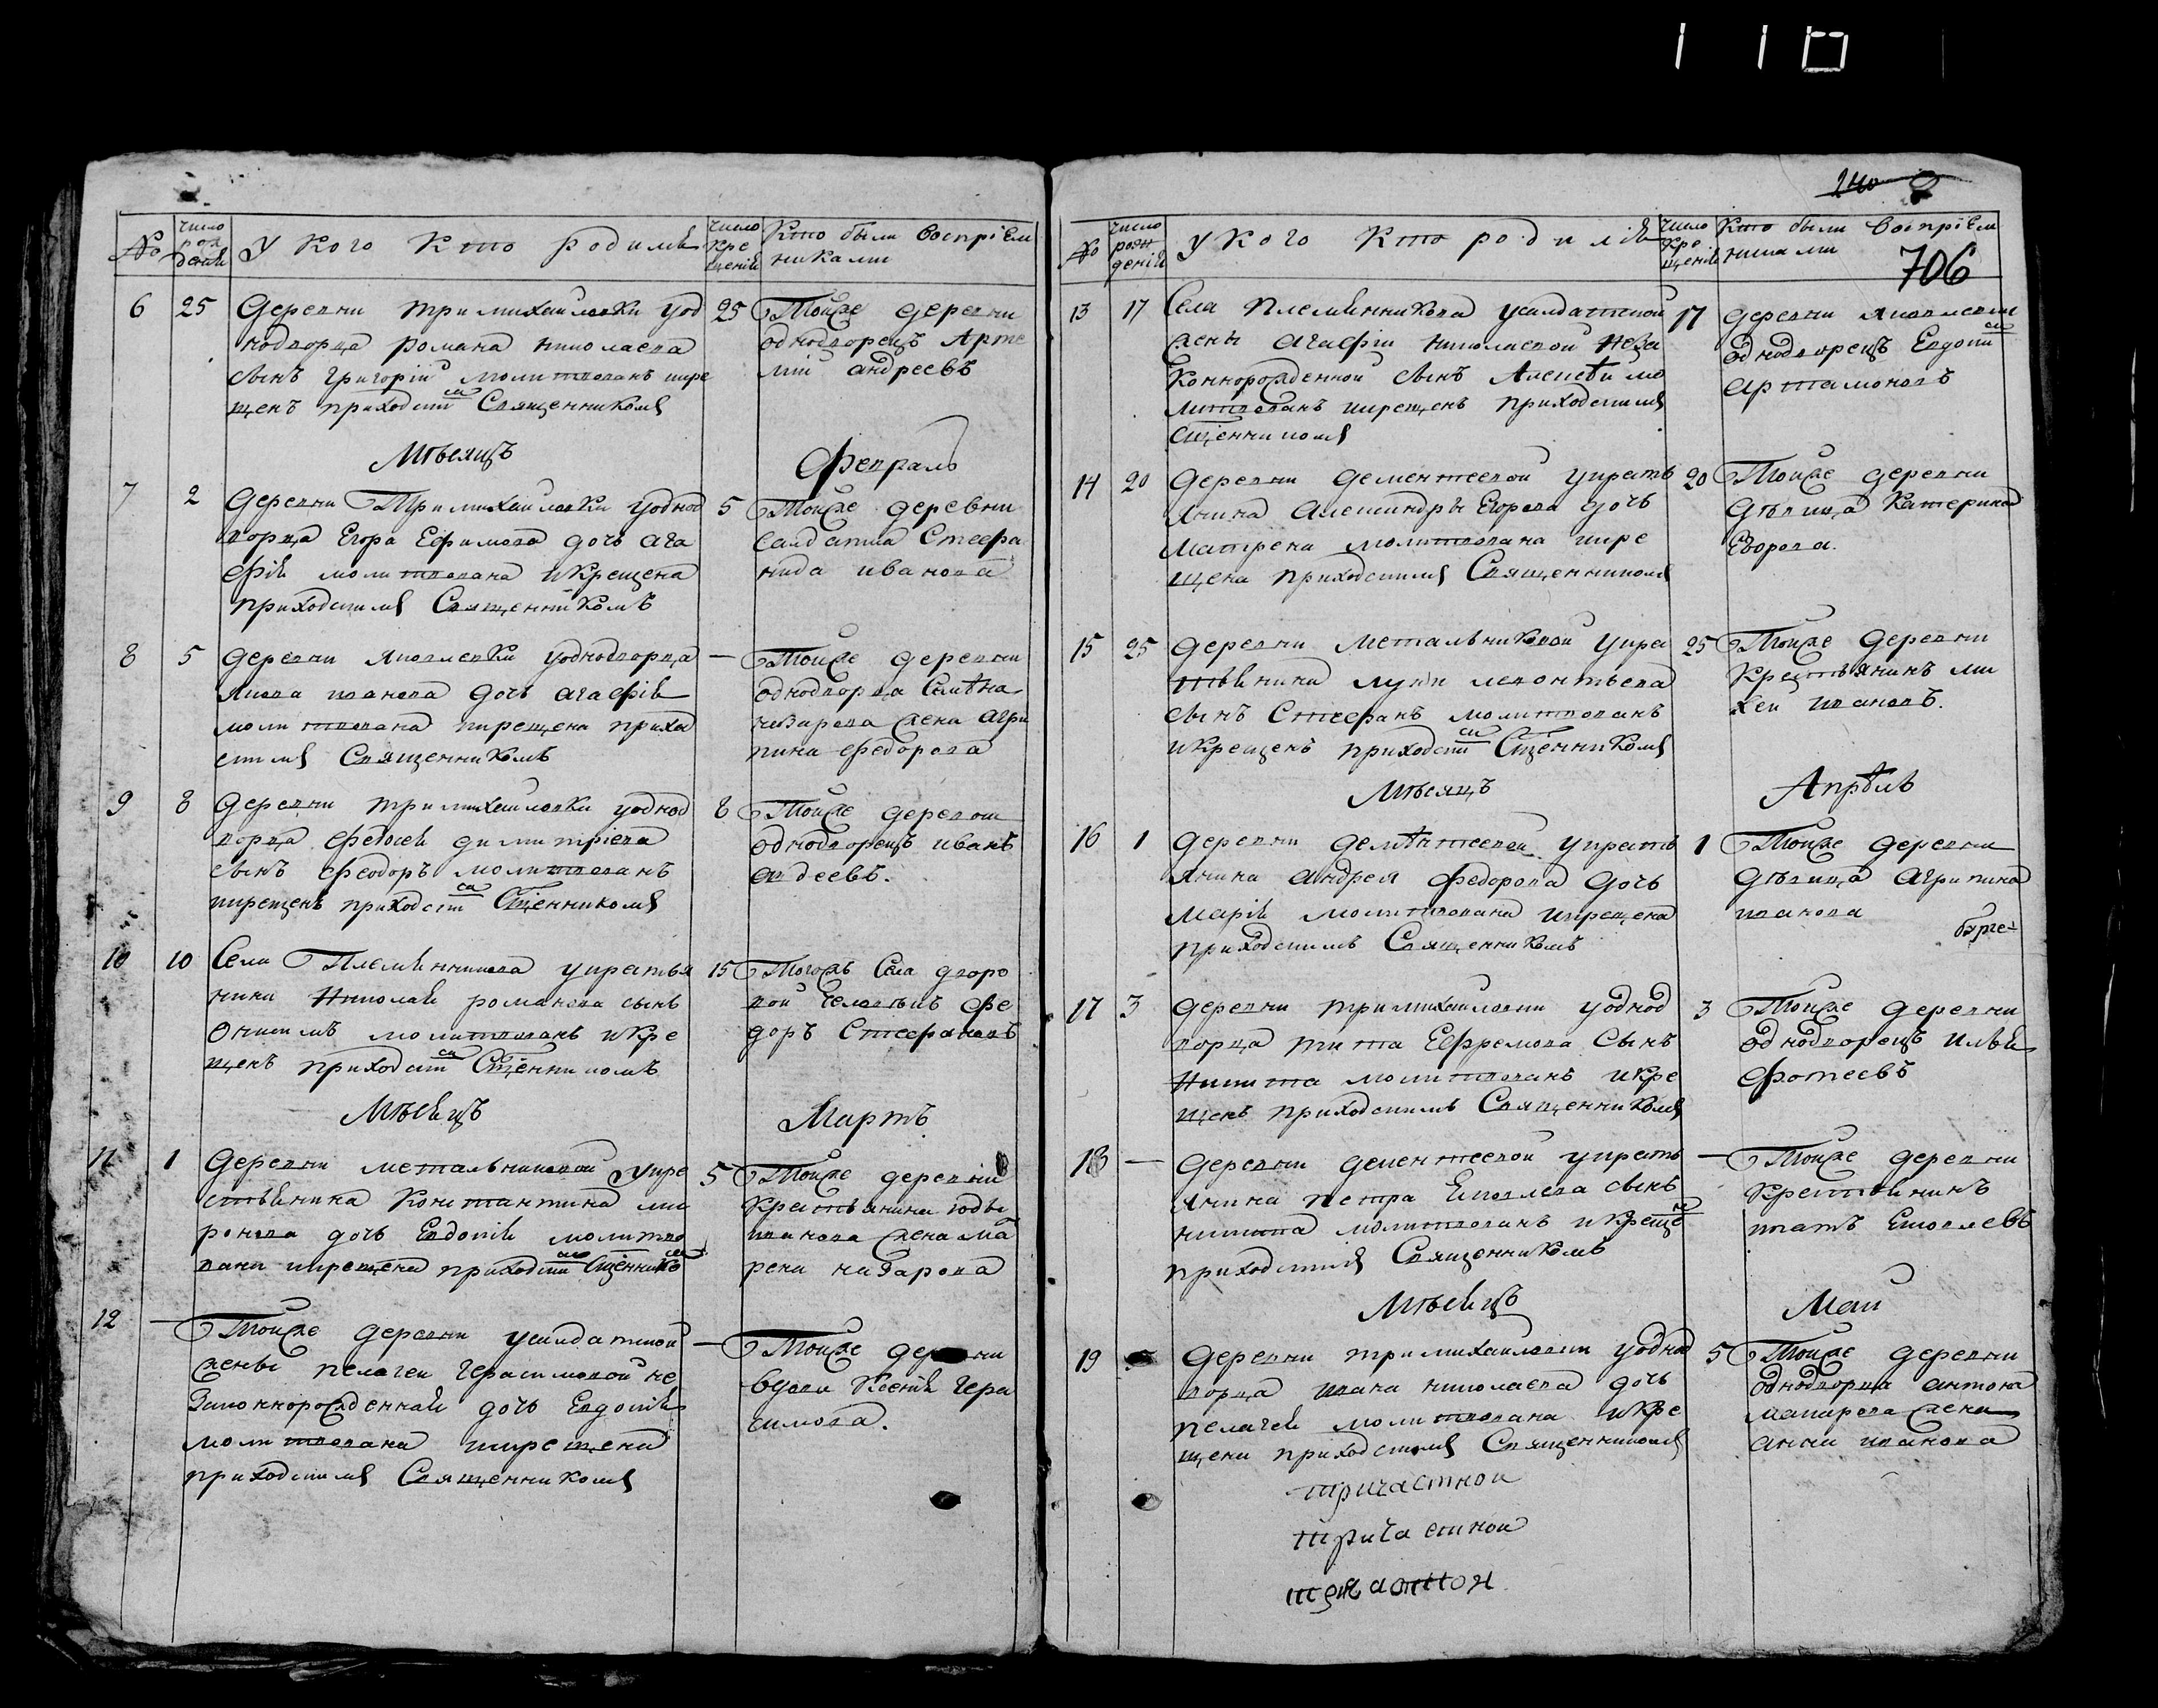 240
706
№
число рождения
У Кого Кто родился
число крещения
Кто были восприемниками
6 25 Деревни тримихаиловки уод
нодворца Романа николаева
сынъ григорій молитвованъ икре
щенъ приходским Священникомъ
25 Тойже деревни
однодворецъ Арте
мій андреевъ
Мѣсяцъ Февраль
7 2 Деревни Тримихаиловки уоднод
ворца Егора Ефимова дочь ага
фія молитвована икрещена
приходскимъ Священникомъ
5 Тойже деревни
салдатка Стефа
нида иванова
8 5 Деревни яковлевки уоднодворца
якова иванова дочь агафія
молитвована икрещена прихо
скимъ Священникомъ
— Тойже деревни
однодворца
назарова жена агри
пина федорова
9 8 Деревни тримихаиловки уоднод
ворца федосея димитріева
сынъ феодоръ молитвованъ
икрещенъ приходским Сщенникомъ
8 Тойже деревни
однодворецъ иванъ
10 10 Села Племянникова укрестья
нина Николая романова сынъ
Онисимъ молитвованъ икре
щенъ приходским Сщенникомъ
15 Тогожъ Села дворо
вой человѣкъ фе
доръ Стефановъ
Мѣсяцъ Мартъ
11 1 Деревни метальниковой укре
стьянина Константина ми
ронова дочь Евдокія молитво
вана икрещена приходским Сщенником
5 Тойже деревни
Крестьянина
иванова жена ма
рена назарова
12 — Тойже деревни усалдатской
жены пелагеи герасимовой не
законнорожденная дочь Евдокія
молитвована икрещена
приходскимъ Священникомъ
— Тойже деревни
вдова Ксенія гера
симова.
№
число рождения
У Кого Кто родился
число крещения
Кто были восприемниками
13 17 Села Племянникова усалдатской
жены агафіи николаевой неза
коннорожденной сынъ Алексѣи мо
литвованъ икрещенъ приходскимъ
Сщенникомъ
17 деревни яковлевки
однодворецъ Евдоким
артамоновъ
14 20 Деревни дементеевой укресть
янина александры Егорова дочь
Матрена молитвована икре
щена приходскимъ Священникомъ
20 Тойже деревни
дѣвица Катерина
Егорова.
15 25 Деревни Метальниковой укре
стьянина луки леонтьева
сынъ Стефанъ молитвованъ
икрещенъ приходским Сщенникомъ
25 Тойже Деревни
Крестьянинъ ми
хеи ивановъ.
Мѣсяцъ Апрѣль
16 1 Деревни демѣнтеевой укресть
янина андрея федорова дочь
Марія молитвована икрещена
приходскимъ Священникомъ
1 Тойже деревни
дѣвица агрипина
иванова
17 3 Деревни тримихаиловки уоднод
ворца тита Ефремова Сынъ
Никита молитвованъ икре
щенъ приходскимъ Священникомъ
3 Тойже деревни
однодворецъ илья
фотеевъ
18 — Деревни дементеевой укресть
янина петра Яковлева сынъ
никита молитвованъ икреще
приходскимъ Священникомъ
— Тойже деревни
Крестьянинъ
Мѣсяцъ Маи
19 Деревни тримихаиловки уоднод
ворца ивана николаева дочь
пелагея молитвована икре
щена приходскимъ Священникомъ
5 Тойже деревни
однодворца антона
макарева жена
анна иванова